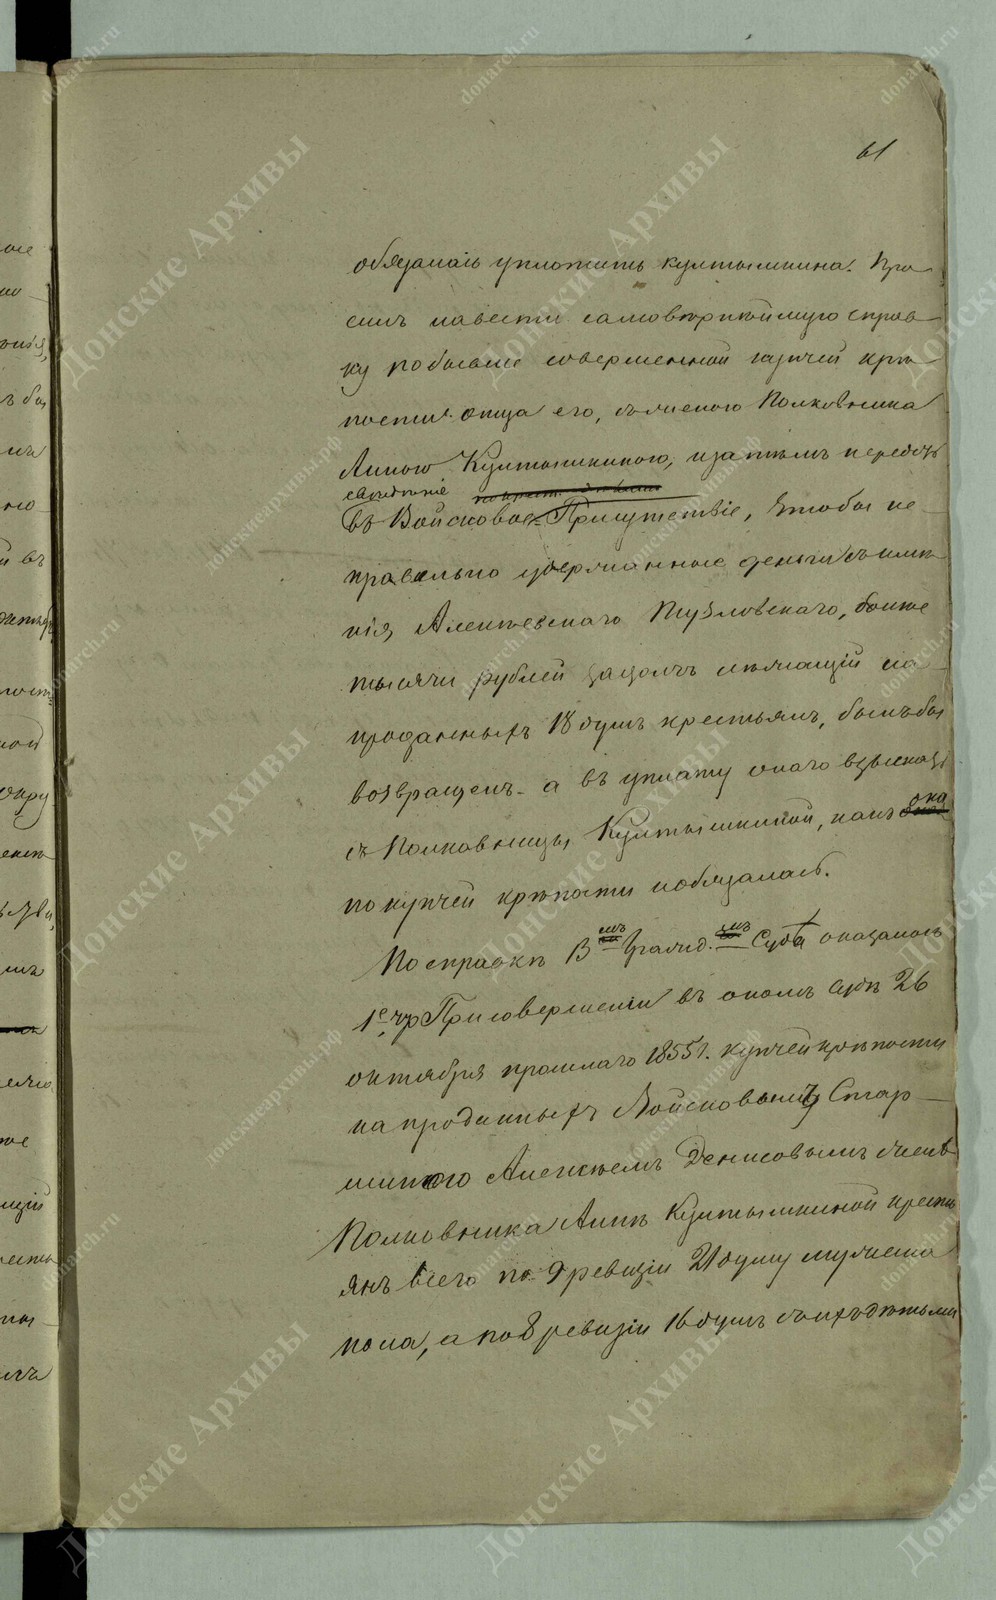 61
обязалась уплотить Култышкина. Про
силъ навести самовѣрнѣйшую справ
ку по бывше совершенной купчей крѣ
пости отца его, съ женою Полковника
Анною Култышкиною, и затѣмъ передать
свѣденiе
въ Войсковое Присутствiе, чтобы не
правильно удержанные деньги съ имѣ
нiя Алексѣевскаго Тузловскаго, болѣе
тысячи рублей за долгъ лѣжащiй на
проданныхъ 18 душъ крестьянъ, былъ бы
возвращенъ а въ уплату онаго взыскать
съ Полковницы Култышкиной, какъ она
по купчей крѣпости и обязалась.
По справкѣ въ Гражд. Судѣ оказалось
1е, чр При совершенiи въ ономъ Судѣ 26
октября прошлаго 1855 г. купчей крѣпости
на проданныхъ Войсковымъ Стар
шиною Алексѣемъ Денисовымъ женѣ
Полковника Аннѣ Култышкиной кресть
янъ всего по 9 ревизiи 21 душу мужеска
пола, а по 8 ревизiи 16 душъ съ ихъ дѣтьми